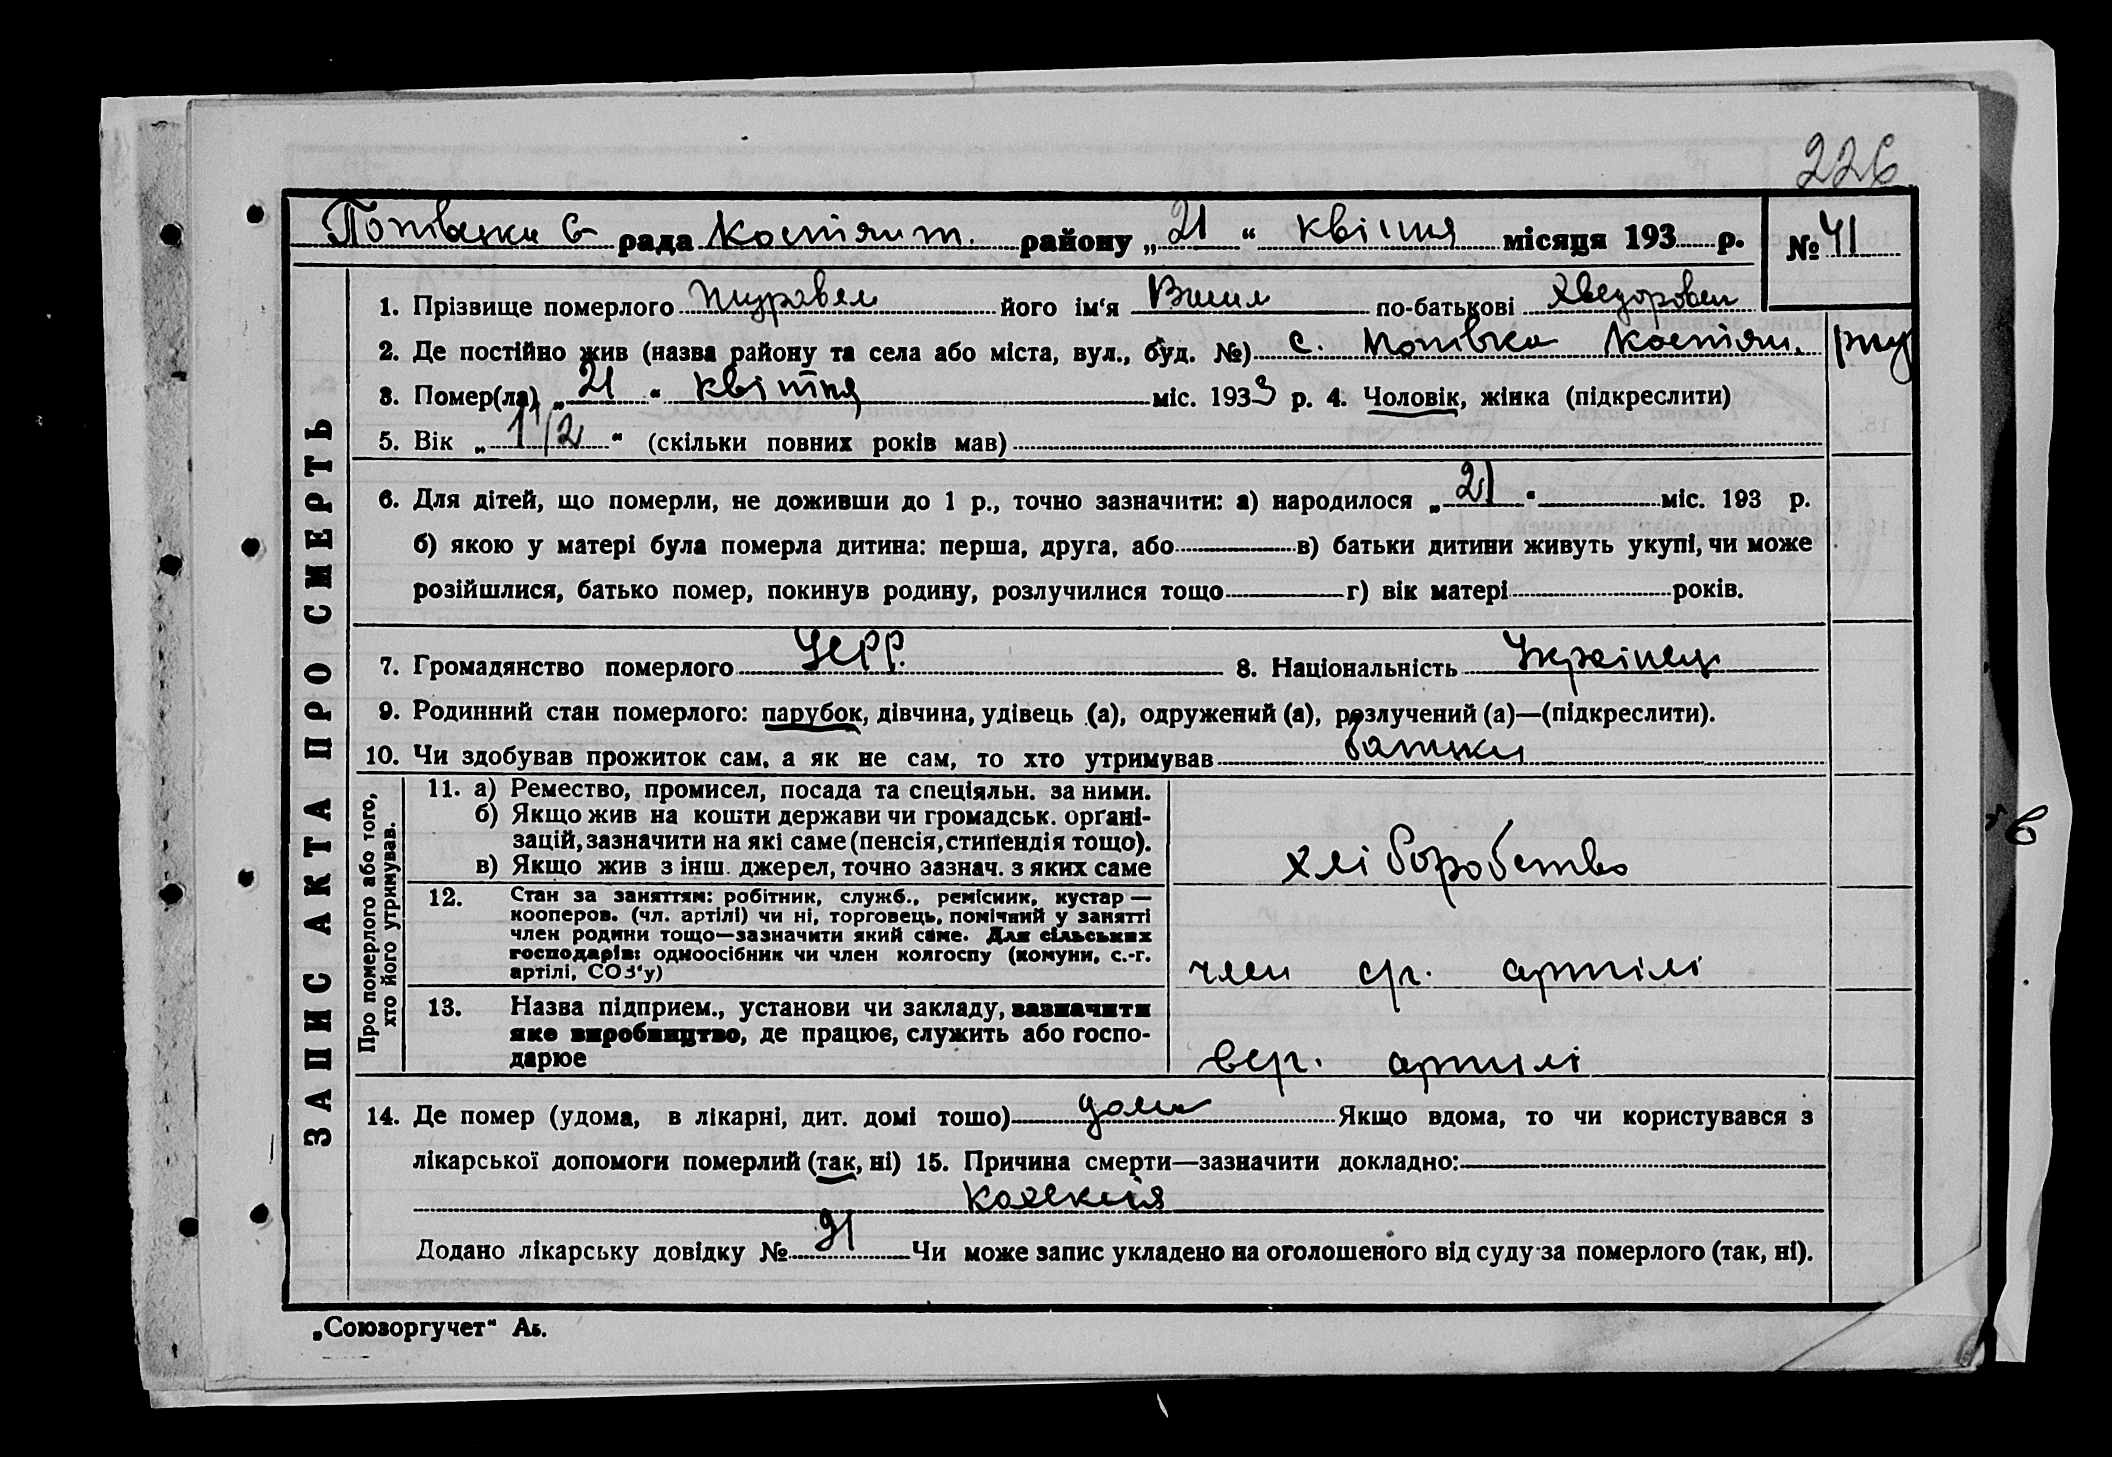 226
Потівська С- рада Костянт. району „21“ квітня місяця 193 р. № 41
1. Прізвище померлого Журавель його ім‘я Васил по-батькові Хведорович
2. Де постійно жив (назва району та села або міста, вул., буд. №) с. Потівка Костян. рну
3. Помер(ла) „21“ квітня міс. 1933 р. 4. Чоловік, жінка (підкреслити)
5. Вік „1 1/2“ (скільки повних років мав)
6. Для дітей, що померли, не доживши до 1 р., точно зазначити: а) народилося „21“ міс. 193 р.
б) якою у матері була померла дитина: перша, друга, або в) батьки дитини живуть укупі, чи може
розійшлися, батько помер, покинув родину, розлучилися тощо г) вік матері років.
7. Громадянство померлого УСРР. 8. Національність Українец
9. Родинний стан померлого: парубок, дівчина, удівець (а), одружений (а), розлучений (а)—(підкреслити).
10. Чи здобував прожиток сам, а як не сам, то хто утримував батьки
ЗАПИС АКТА ПРО СМЕРТЬ
Про померлого або того,
хто його утримував.
11. а) Ремество, промисел, посада та спеціяльн. за ними.
б) Якщо жив на кошти держави чи громадськ. орґані-
зацій, зазначити на які саме (пенсія, стипендія тощо).
в) Якщо жив з інш. джерел, точно зазнач. з яких саме
хліборобство
12. Стан за заняттям: робітник, служб., ремісник, кустар —
кооперов. (чл. артілі) чи ні, торговець, помічний у занятті
член родини тощо—зазначити який саме. Для сільських
господарів: одноосібник чи член колгоспу (комуни, с.-г.
артілі, СОЗ‘у)
член ср. артілі
13. Назва підприєм., установи чи закладу, зазначити
яке виробництво, де працює, служить або госпо-
дарює
артілі
14. Де помер (удома, в лікарні, дит. домі тошо) дома Якщо вдома, то чи користувався з
лікарської допомоги померлий (так, ні) 15. Причина смерти—зазначити докладно:
Додано лікарську довідку № 91 Чи може запис укладено на оголошеного від суду за померлого (так, ні).
„Союзоргучет“ АБ.